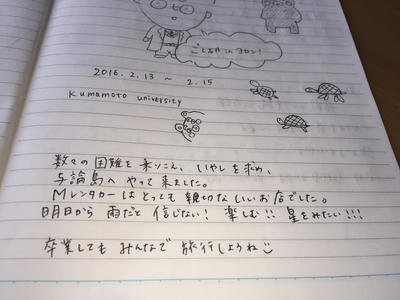 ごとお前 in ヨロン!
2016. 2. 13 ~ 2. 15
Kumamoto university
数々の困難を乗りこえ、いやしを求め、
与論島へ やって来ました。
Mレンタカーはとっても親切ないいお店でした。
明日から 雨だと 信じない! 楽しむ!! 星をみたい!!!
卒業しても みんなで 旅行しようね